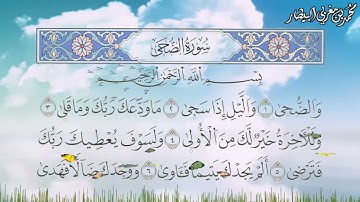 سُورَةُ الضُّحَى
بِسْمِ اللَّهِ الرَّحْمَٰنِ الرَّحِيمِ
وَالضُّحَىٰ ١ وَالَّيْلِ إِذَا سَجَىٰ ٢ مَا وَدَّعَكَ رَبُّكَ وَمَا قَلَىٰ ٣
وَلَلْآخِرَةُ خَيْرٌ لَكَ مِنَ الْأُولَىٰ ٤ وَلَسَوْفَ يُعْطِيكَ رَبُّكَ
فَتَرْضَىٰ ٥ أَلَمْ يَجِدْكَ يَتِيمًا فَآوَىٰ ٦ وَوَجَدَكَ ضَالًّا فَهَدَىٰ